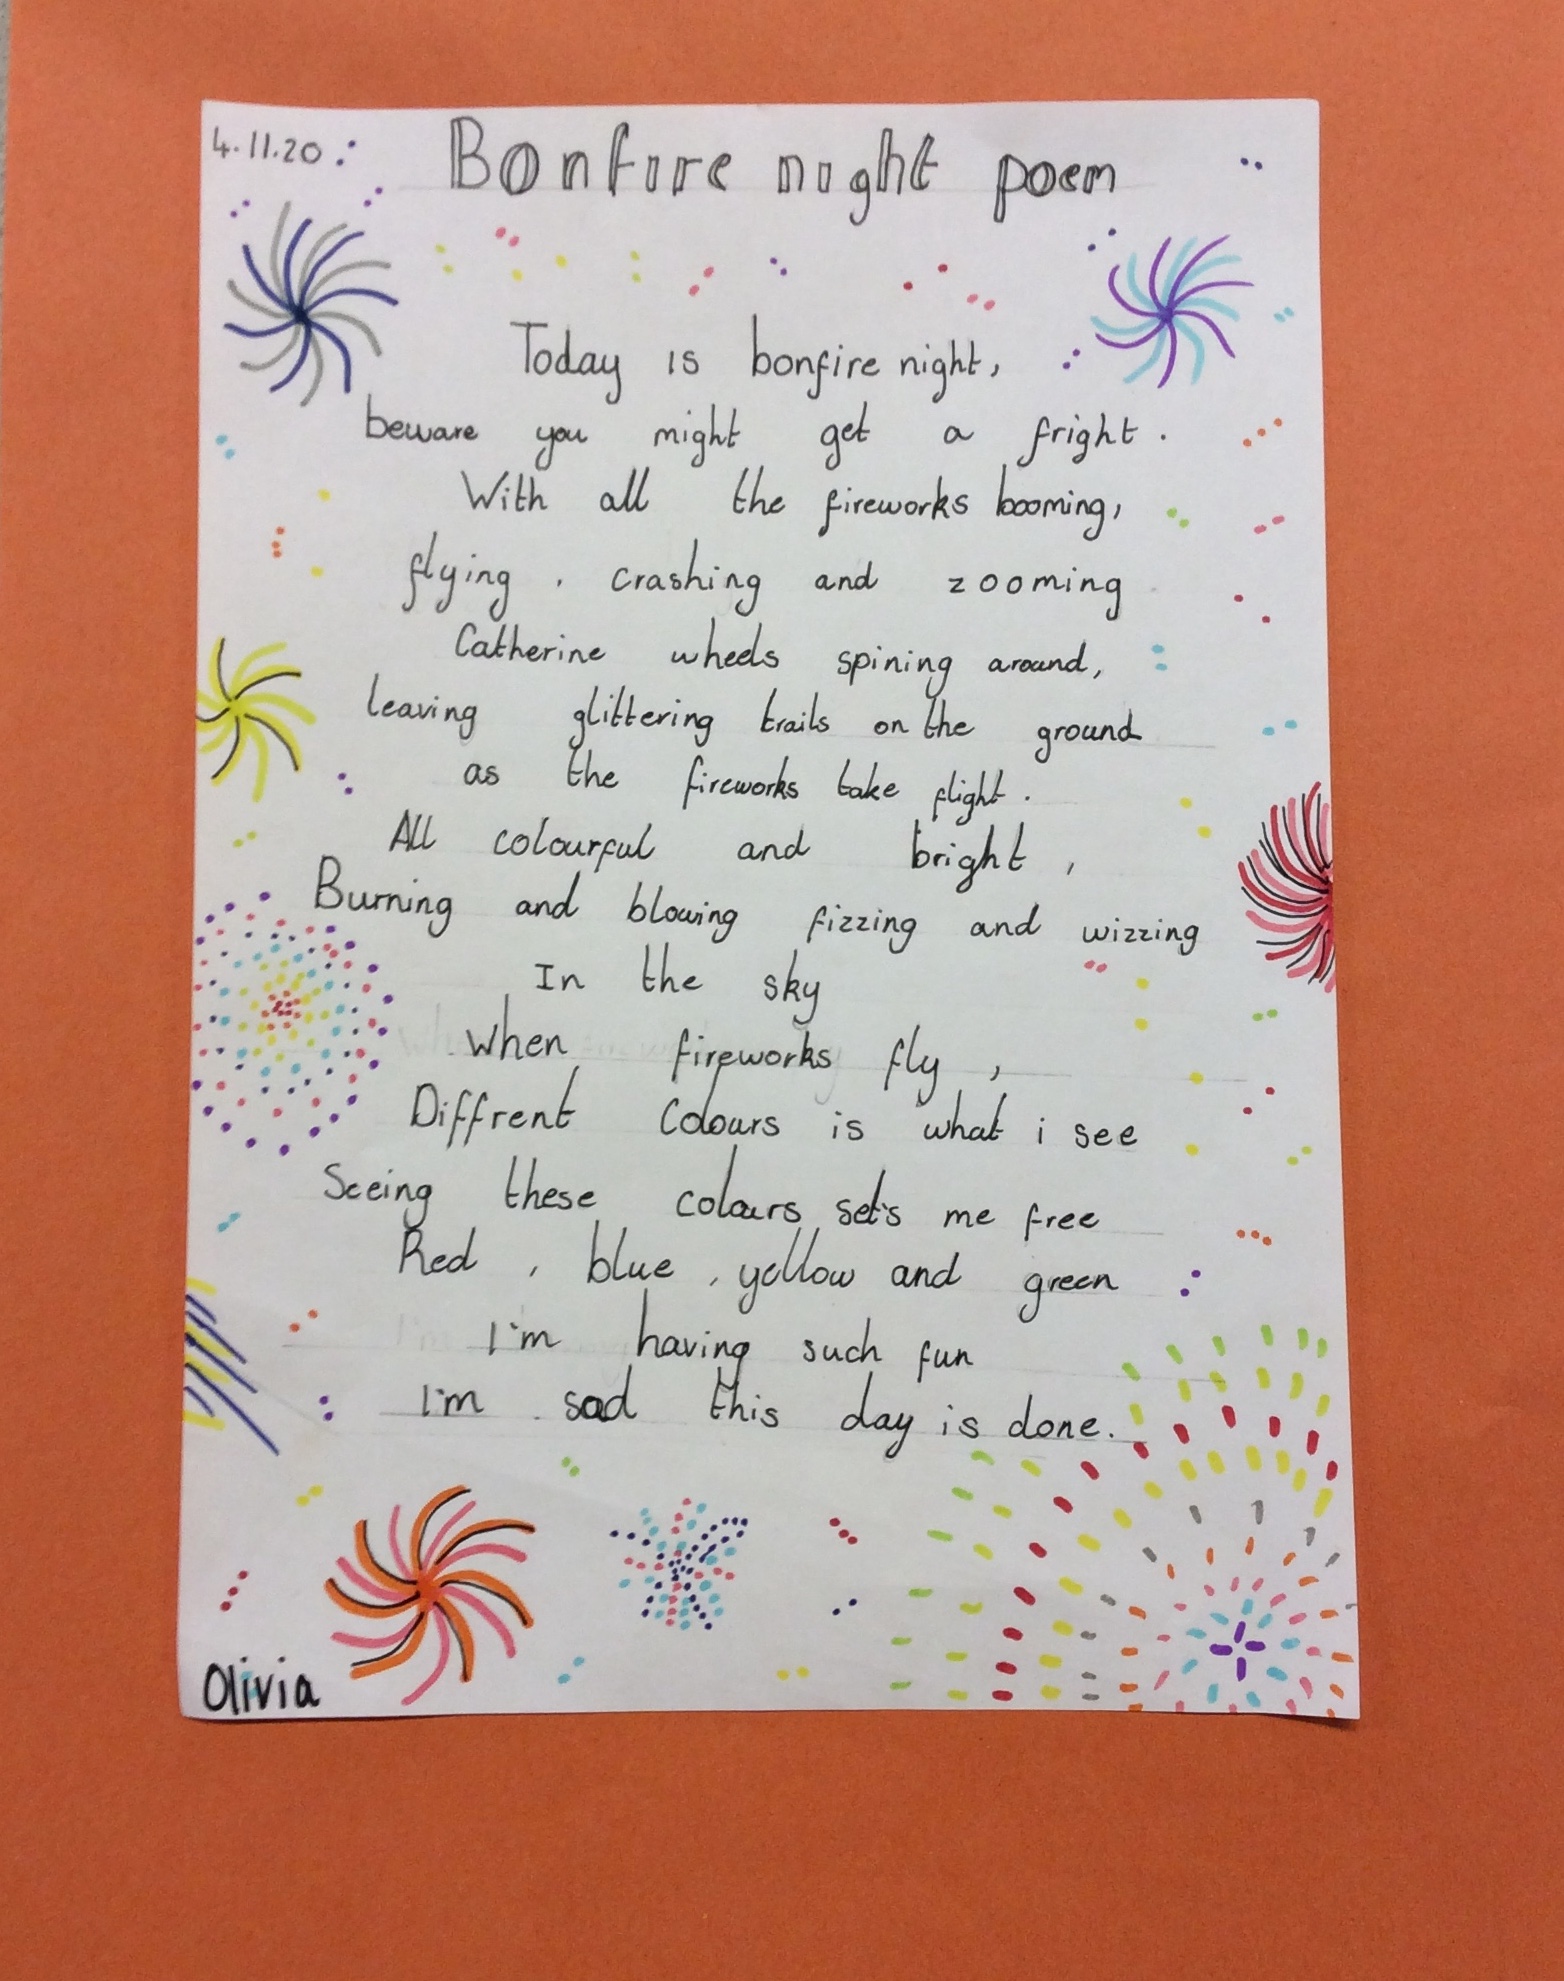 4.11.20
Bonfire night poem
Today is bonfire night,
beware you might get a fright.
With all the fireworks booming,
flying, crashing and zooming
Catherine wheels spining around,
leaving glittering trails on the ground
as the fireworks take flight.
All colourful and bright,
Burning and blowing fizzing and wizzing
In the sky
When fireworks fly,
Diffrent Colours is what i see
Seeing these colours set's me free
Red, blue, yellow and green
I'm having such fun
I'm sad this day is done.
Olivia